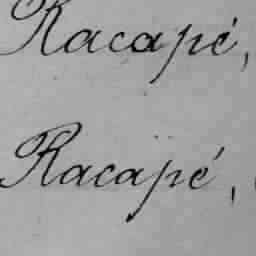 Racapé,
Racapé,